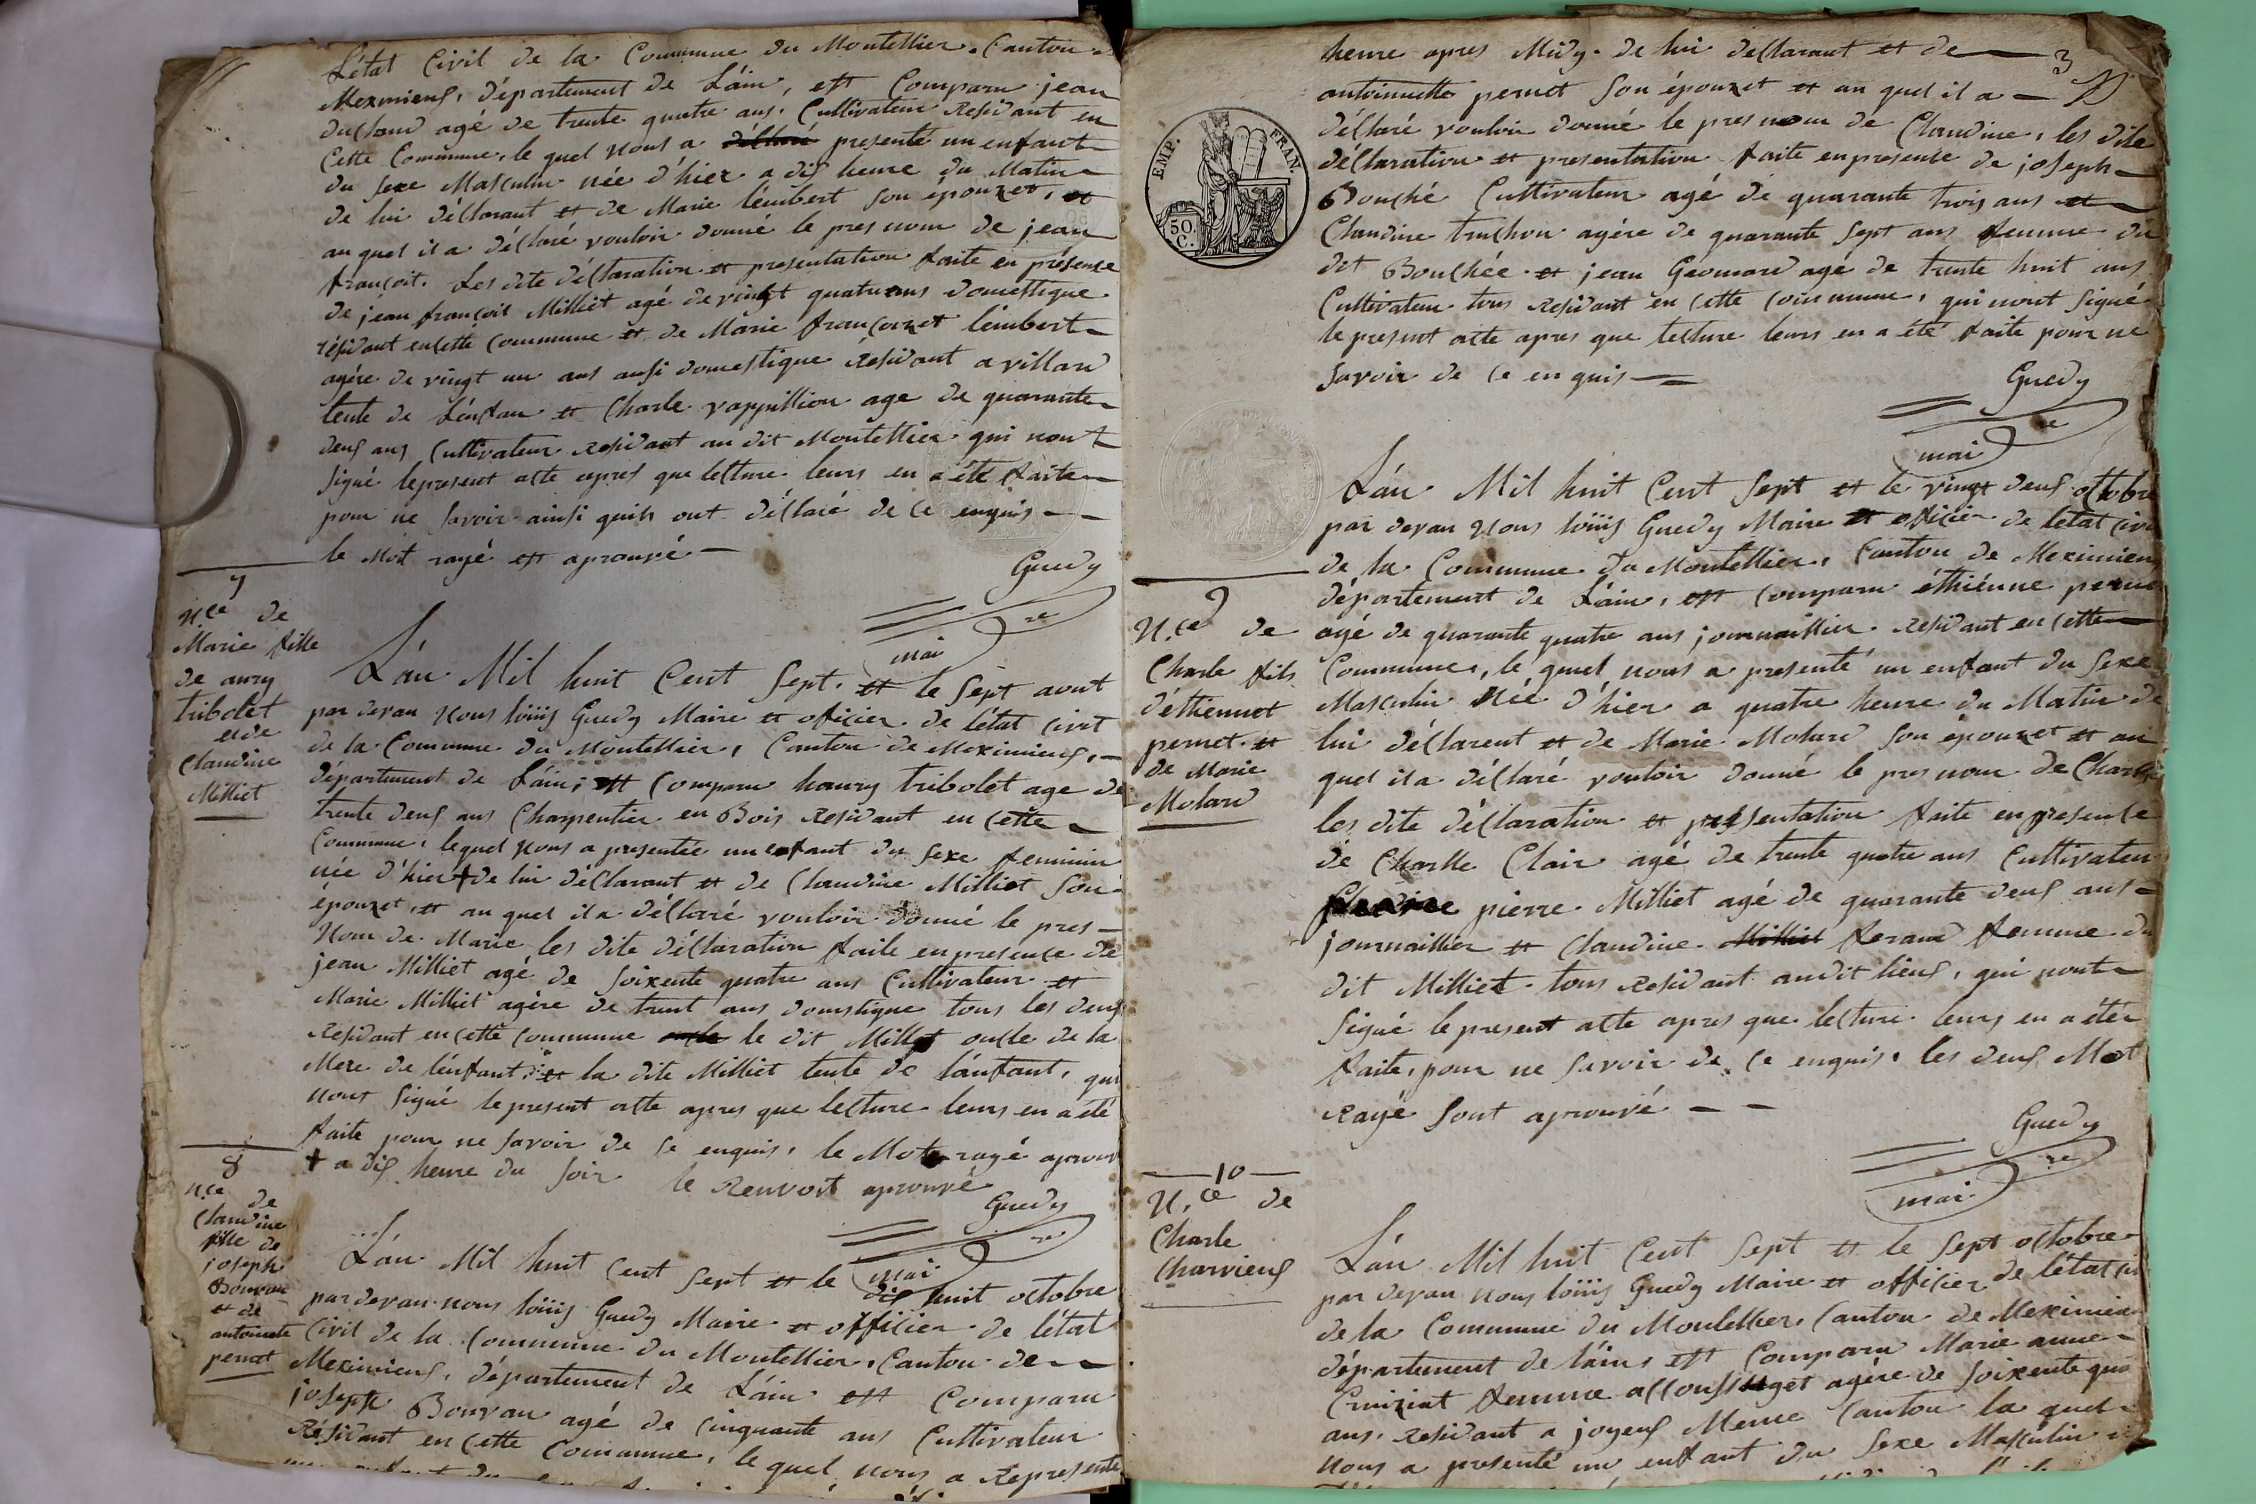 L'état Civil de la Commune du Montellier. Canton
Meximieuf, département de L'ain, est Comparu jean
agé de trente quatre ans, Cultivateur Résidant en
Cette Commune, le quel nous a déclaré presenté un enfant
du sexe Masculin née d'hier a dis heure du Matin
de lui déclarant et de Marie lémbert son épouzet, et
au quel il a déclaré vouloir donné le pres nom de jean
françoit. Les dite déclaration et presentation faite en présence
de jean françoit Milliet agé de vinght quatre ans domestique
résidant en cette commune et de Marie françoizet lémbert
agére de vingt un ans ausi domestique Résidant a villard
tente de L'énfan et Charle vappillion age de quarante
deuf ans Cultivateur residant au dit Montellier qui nont
signé le present acte apres que lecture leurs en a été faite
pour ne savoir ainsi quih ont déclaré de ce enquis
le Mot rayé est aprouvé
Guedy
mai re
7
N.ce de
Marie fille
de aury
tribolet
et de
Claudine
Milliet
L'án Mil huit Cent Sept. et le Sept aout
par devan Nous loüis Guedy Maire et oficier de l'état Civit
de la Commune du Montellier, Canton de Meximieuf,
département de L'áin, est Comparu haury tribolet age de
trente deuf ans Charpentier en Bois Residant en Cette
Commune, lequel Nous a presentée un enfant du sexe feminin
née d'hier + de lui déclarant et de Claudine Milliet son
épouzet, et au quel il a déclaré vouloir donné le pres
Nom de Marie les dite déclaration faite en presence de
jean Milliet agé de soixente quatre ans Cultivateur et
Marie Milliet agére de trent ans domstique tous les deuf
Residant en cette commune oncle le dit Milliet oncle de la
Mere de l'énfant et la dite Milliet tente de l'ánfant, qui
nont signé le present acte apres que lecture leurs en a été
faite pour ne savoir de ce enquis, le Mot ragé aprouv
+ a dis heure du soir le Renvoit aprouvé
Guedy
mai re
8
N.ce de
Claudine
fille de
joseph
Bouvan
et de
antoinete
pernet
L'án Mil huit Cent Sept et le dis huit octobre
par devan nous loüis Guedy Maire et officier de l'état
Civil de la Commune du Montellier, Canton de
Meximieuf, département de L'áin est Comparu
joseph Bouvan agé de cinquante ans Cultivateur
Résidant en Cette Commune, le quel nous a Représenté
3
heure apres Midy de lui déclarant et de
antoinnette pernet son épouzet et au quel il a
déclaré vouloir donné le pres nom de Claudine, les dite
déclaration et presentation faite en presence de joseph
Bouché Cultivateur agé de quarante trois ans et
Claudine truchon agére de quarante sept ans femme du
dit Bouchée et jean Géomard agé de trente huit ans
Cultivateur tous residant en cette commune, qui nont signé
le present acte apres que lecture leurs en a été faite pour ne
savoir de ce en quis
EMP. FRAN.
50 C.
Guedy
mai re
9
N.ce de
Charle fils
d'éthiennet
pernet et
de Marie
Molard
L'án Mil huit Cent Sept et le vingt deuf octobre
par devan Nous loüis Guedy Maire et oficier de l'état civi
de la Commune du Montellier, Canton de Meximieu
département de L'áin, est comparu éthiénne pernet
agé de quarante quatre ans journaillier residant en cette
Commune, le quel nous a presenté un enfant du sexe
Masculin Née d'hier a quatre heure du Matin de
lui déclarent et de Marie Molard son épouzet et au
quel il a déclaré vouloir donné le pres nom de Charle
les dite déclaration et presentation faite en presence
de Charlle Clair agé de trente quatre ans Cultivateur
pierre Milliet agé de quarante deuf ans
journaillier et Claudine Milliet feraud femme du
dit Milliet tous residant audit lieuf, qui nont
signé le present acte apres que lecture leurs en a étér
faite, pour ne savoir de ce enquis, les deuf Mot
rayé sont aprouvé
Guedy
mai re
10
N.ce de
Charle
Charvieuf
L'án Mil huit Cent Sept et le Sept octobre
par devan nous loüis Guedy Maire et officier de l'état ci
de la Commune du Montellier, Canton de Meximieu
département de l'áin, est Comparu Marie anne
Cruiziat femme agére de soixente qua
ans. residant a joyeuf Meme Canton la quel
nous a presenté un enfant du sexe Masculin